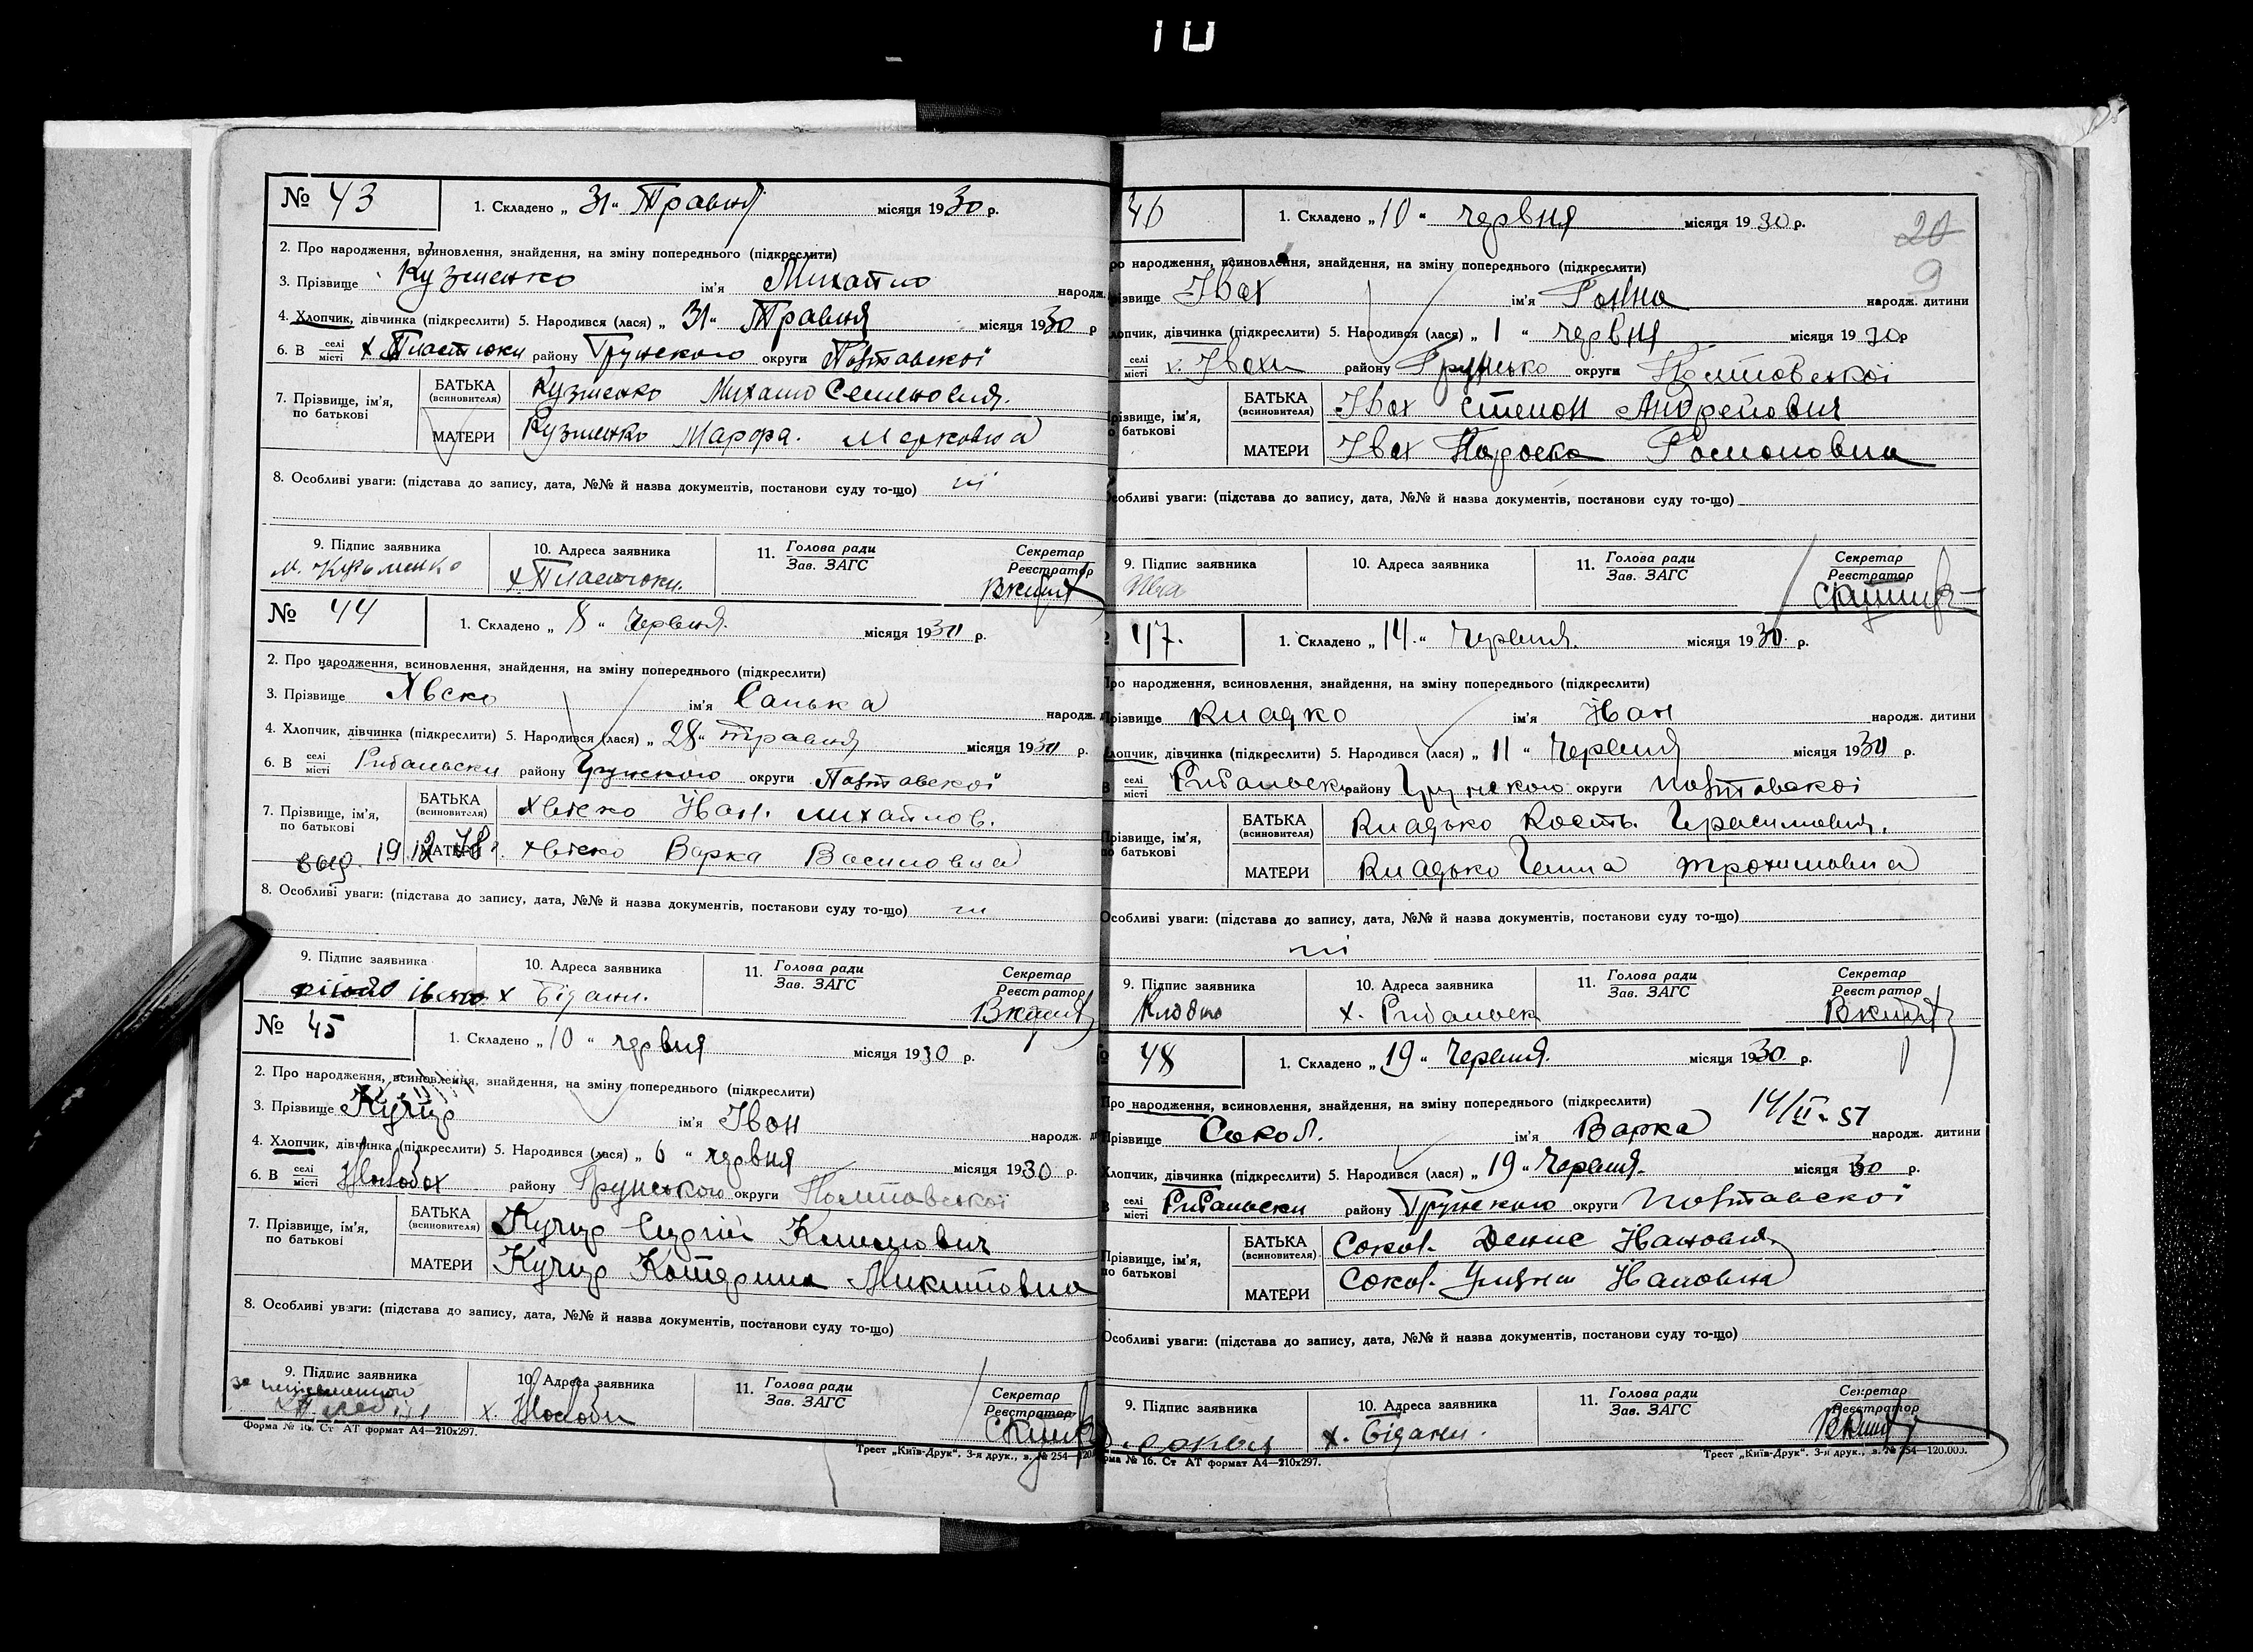 № 43
1. Складено „ 31 “ Травня місяця 1930 р.
2. Про народження, всиновлення, знайдення, на зміну попереднього (підкреслити)
3. Прізвище Кузменко ім'я Михайло народж.
4. Хлопчик, дівчинка (підкреслити) 5. Народився (лася) „ 31 “ Травня місяця 1930 р
6. В селі місті х Пластюки району Грунського округи Полтавскої
7. Прізвище, ім'я, по батькові
БАТЬКА (всиновителя) Кузменко Михайло Семенович.
МАТЕРИ Кузменко Марфа.
8. Особливі уваги: (підстава до запису, дата, №№ й назва документів, постанови суду то-що) ні
9. Підпис заявника 10. Адреса заявника 11. Голова ради Зав. ЗАГС Секретар Реєстратор
М. Кузьменко х Пластюки.
№ 44
1. Складено „ 8 “ Червня. місяця 1930 р.
2. Про народження, всиновлення, знайдення, на зміну попереднього (підкреслити)
3. Прізвище ім'я Санька народж.
4. Хлопчик, дівчинка (підкреслити) 5. Народився (лася) „ 28 “ травня місяця 1930 р.
6. В селі місті Рибальски району Грунского округи Полтавскої
7. Прізвище, ім'я, по батькові
БАТЬКА (всиновителя) Іван. михайлов.
МАТЕРИ Варка Василовна
8. Особливі уваги: (підстава до запису, дата, №№ й назва документів, постанови суду то-що) ні
9. Підпис заявника 10. Адреса заявника 11. Голова ради Зав. ЗАГС Секретар Реєстратор
х Бідани.
№ 45
1. Складено „ 10 “ червня місяця 1930 р.
2. Про народження, всиновлення, знайдення, на зміну попереднього (підкреслити)
3. Прізвище Кучер ім'я Іван народж.
4. Хлопчик, дівчинка (підкреслити) 5. Народився (лася) „ 6 “ червня місяця 1930 р.
6. В селі місті району Грунського округи Полтавської
7. Прізвище, ім'я, по батькові
БАТЬКА (всиновителя) Кучер Сергій Климович
МАТЕРИ Кучер Катерина Микитовна
8. Особливі уваги: (підстава до запису, дата, №№ й назва документів, постанови суду то-що)
9. Підпис заявника 10. Адреса заявника 11. Голова ради Зав. ЗАГС Секретар Реєстратор
Форма № 16. Ст АТ формат А4—210х297.
Трест „Київ-Друк“. 3-я друк., з. № 254—120
46
1. Складено „ 10 “ червня місяця 1930 р.
20
9
ро народження, всиновлення, знайдення, на зміну попереднього (підкреслити)
різвище Івах ім'я Ганна народж. дитини
лопчик, дівчинка (підкреслити) 5. Народився (лася) „ 1 “ червня місяця 1930р
селі місті х. Івахи району Грунсько округи Полтовської
різвище, ім'я, по батькові
БАТЬКА (всиновителя) Івах Степан Андрейович
МАТЕРИ Івах Параска Романовна
Особливі уваги: (підстава до запису, дата, №№ й назва документів, постанови суду то-що)
9. Підпис заявника 10. Адреса заявника 11. Голова ради Зав. ЗАГС Секретар Реєстратор
47.
1. Складено „ 14. “ Червня. місяця 1930. р.
Про народження, всиновлення, знайдення, на зміну попереднього (підкреслити)
Прізвище Кладко ім'я Іван народж. дитини
Хлопчик, дівчинка (підкреслити) 5. Народився (лася) „ 11 “ Червня місяця 1930 р.
В селі місті Рибальски району Грунского округи Полтавскої
Прізвище, ім'я, по батькові
БАТЬКА (всиновителя) Кладько Кость. Герасимович.
МАТЕРИ Кладько Ганна Трохимовна
Особливі уваги: (підстава до запису, дата, №№ й назва документів, постанови суду то-що)
ні
9. Підпис заявника 10. Адреса заявника 11. Голова ради Зав. ЗАГС Секретар Реєстратор
х. Рибальск
48
1. Складено „ 19 “ Червня. місяця 1930. р.
Про народження, всиновлення, знайдення, на зміну попереднього (підкреслити)
14/II-51
Прізвище Сокол. ім'я Варка народж. дитини
Хлопчик, дівчинка (підкреслити) 5. Народився (лася) „ 19 “ Червня. місяця 1930 р.
В селі місті Рибальски району Грунского округи Полтавскої
Прізвище, ім'я, по батькові
БАТЬКА (всиновителя) Сокол. Денис Іванович
МАТЕРИ Сокол. Івановна
Особливі уваги: (підстава до запису, дата, №№ й назва документів, постанови суду то-що)
9. Підпис заявника 10. Адреса заявника 11. Голова ради Зав. ЗАГС Секретар Реєстратор
х. Бідани.
рма № 16. Ст АТ формат А4—210х297.
Трест „Київ-Друк“. 3-я друк., з. № 254—120.000.